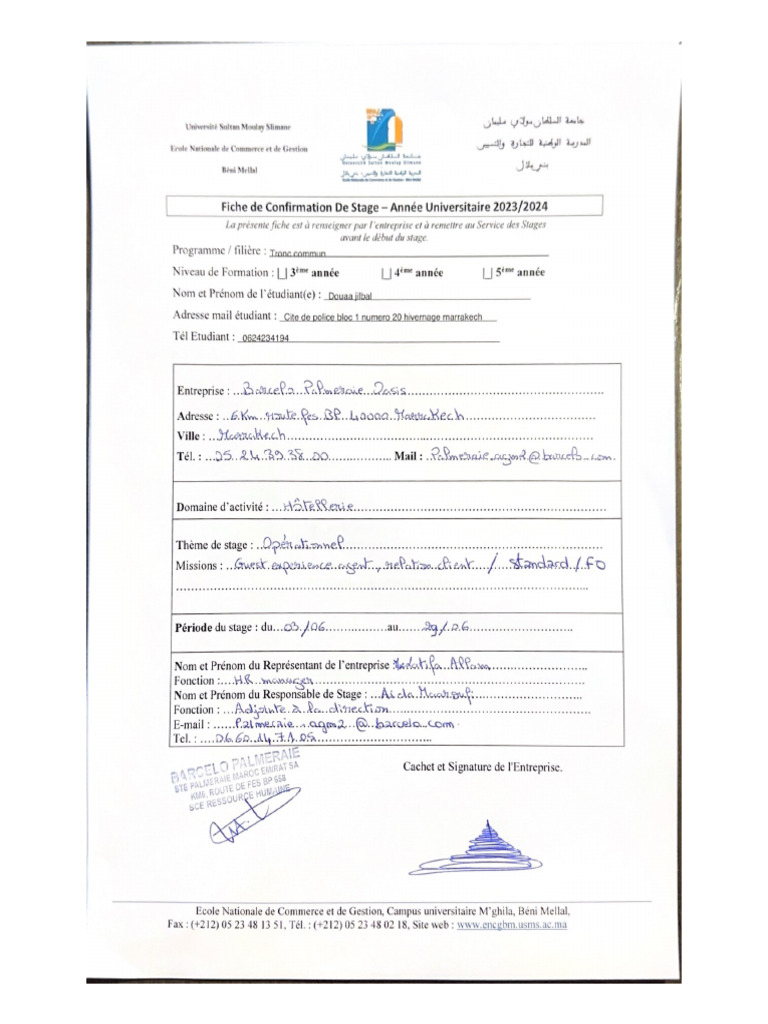 Université Sultan Moulay Slimane
Ecole Nationale de Commerce et de Gestion
Béni Mellal
جامعة السلطان مولاي سليمان
المدرسة الوطنية للتجارة والتسيير
بني ملال
Fiche de Confirmation De Stage – Année Universitaire 2023/2024
La présente fiche est à renseigner par l'entreprise et à remettre au Service des Stages
avant le début du stage.
Programme / filière : Tronc commun
Niveau de Formation : |_| 3ème année |_| 4ème année |_| 5ème année
Nom et Prénom de l'étudiant(e) : Douaa jilbal
Adresse mail étudiant : Cite de police bloc 1 numero 20 hivernage marrakech
Tél Etudiant : 0624234194
Entreprise : Barcelo Palmeraie Oasis
Adresse : 6 Km Route fes BP 40000 Marrakech
Ville : Marrakech
Tél. : 05 24 39 38 00 Mail : Palmeraie.agm2@barcelo.com
Domaine d'activité : Hôtellerie
Thème de stage : Opérationnel
Missions : Guest experience agent, relation client / standard / FO
Période du stage : du 03/06 au 29/06
Nom et Prénom du Représentant de l'entreprise
Fonction : HR manager
Nom et Prénom du Responsable de Stage : Aida
Fonction : Adjointe à la direction
E-mail : Palmeraie.agm2@barcelo.com
Tel. : 06 60 14 71 05
BARCELO PALMERAIE
STE PALMERAIE MAROC EMIRAT SA
KM6, ROUTE DE FES BP 558
SCE RESSOURCE HUMAINE
Cachet et Signature de l'Entreprise.
Ecole Nationale de Commerce et de Gestion, Campus universitaire M'ghila, Béni Mellal,
Fax : (+212) 05 23 48 13 51, Tél. : (+212) 05 23 48 02 18, Site web : www.encgbm.usms.ac.ma